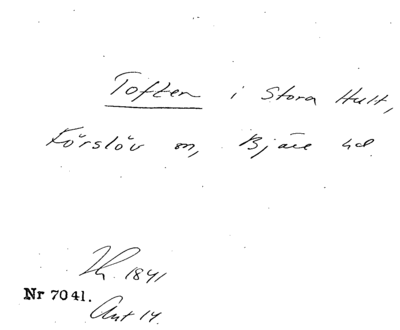 Toften i Stora Hult,
Förslöv sn, Bjäre hd
1841
Nr 7041.
Akt 14.